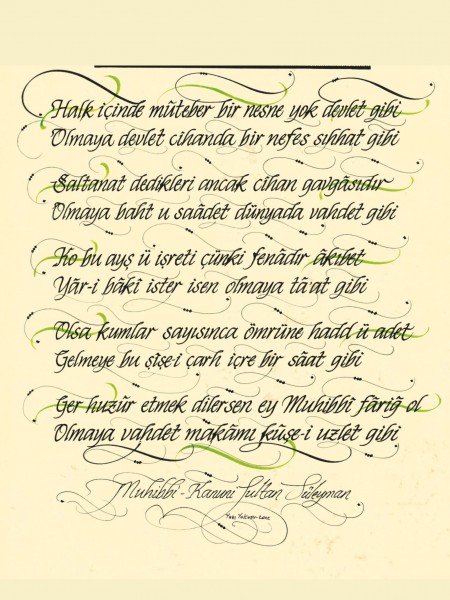 Halk içinde mûteber bir nesne yok devlet gibi
Olmaya devlet cihanda bir nefes sıhhat gibi
Saltanat dedikleri ancak cihan gavgâsıdır
Olmaya baht u saâdet dünyada vahdet gibi
Ko bu ayş ü işreti çünki fenâdır âkıbet
Yâr-i bâkî ister isen olmaya tâat gibi
Olsa kumlar sayısınca ömrüne hadd ü adet
Gelmeye bu şîşe-i çarh içre bir sâat gibi
Ger huzûr etmek dilersen ey Muhibbî fâriğ ol
Olmaya vahdet makâmı kûşe-i uzlet gibi
Muhibbî - Kanuni Sultan Süleyman